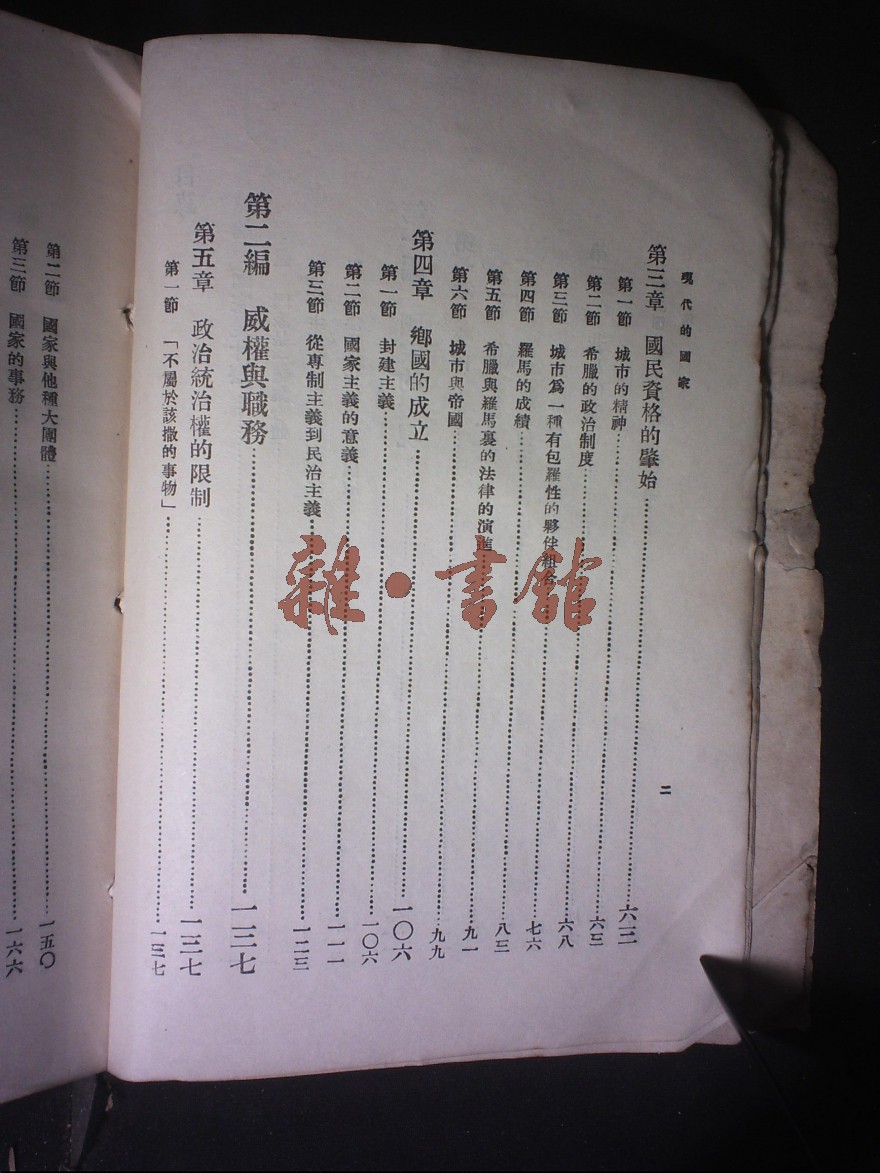 現代的國家
二
第三章 國民資格的肇始……六三
第一節 城市的精神……六三
第二節 希臘的政治制度……六八
第三節 城市爲一種有包羅性的夥伴組合……七六
第四節 羅馬的成績……八三
第五節 希臘與羅馬裏的法律的演進……九一
第六節 城市與帝國……九九
第四章 鄉國的成立……一〇六
第一節 封建主義……一〇六
第二節 國家主義的意義……一一一
第三節 從專制主義到民治主義……一二三
第二編 威權與職務……一三七
第五章 政治統治權的限制……一三七
第一節 「不屬於該撒的事物」……一三七
第二節 國家與他種大團體……一五〇
第三節 國家的事務……一六六
雜·書館